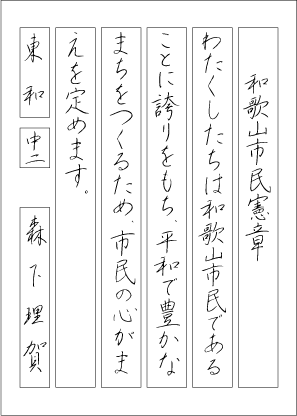 和歌山市民憲章
わたくしたちは和歌山市民である
ことに誇りをもち、平和で豊かな
まちをつくるため、市民の心がま
えを定めます。
東和 中二 森下理賀